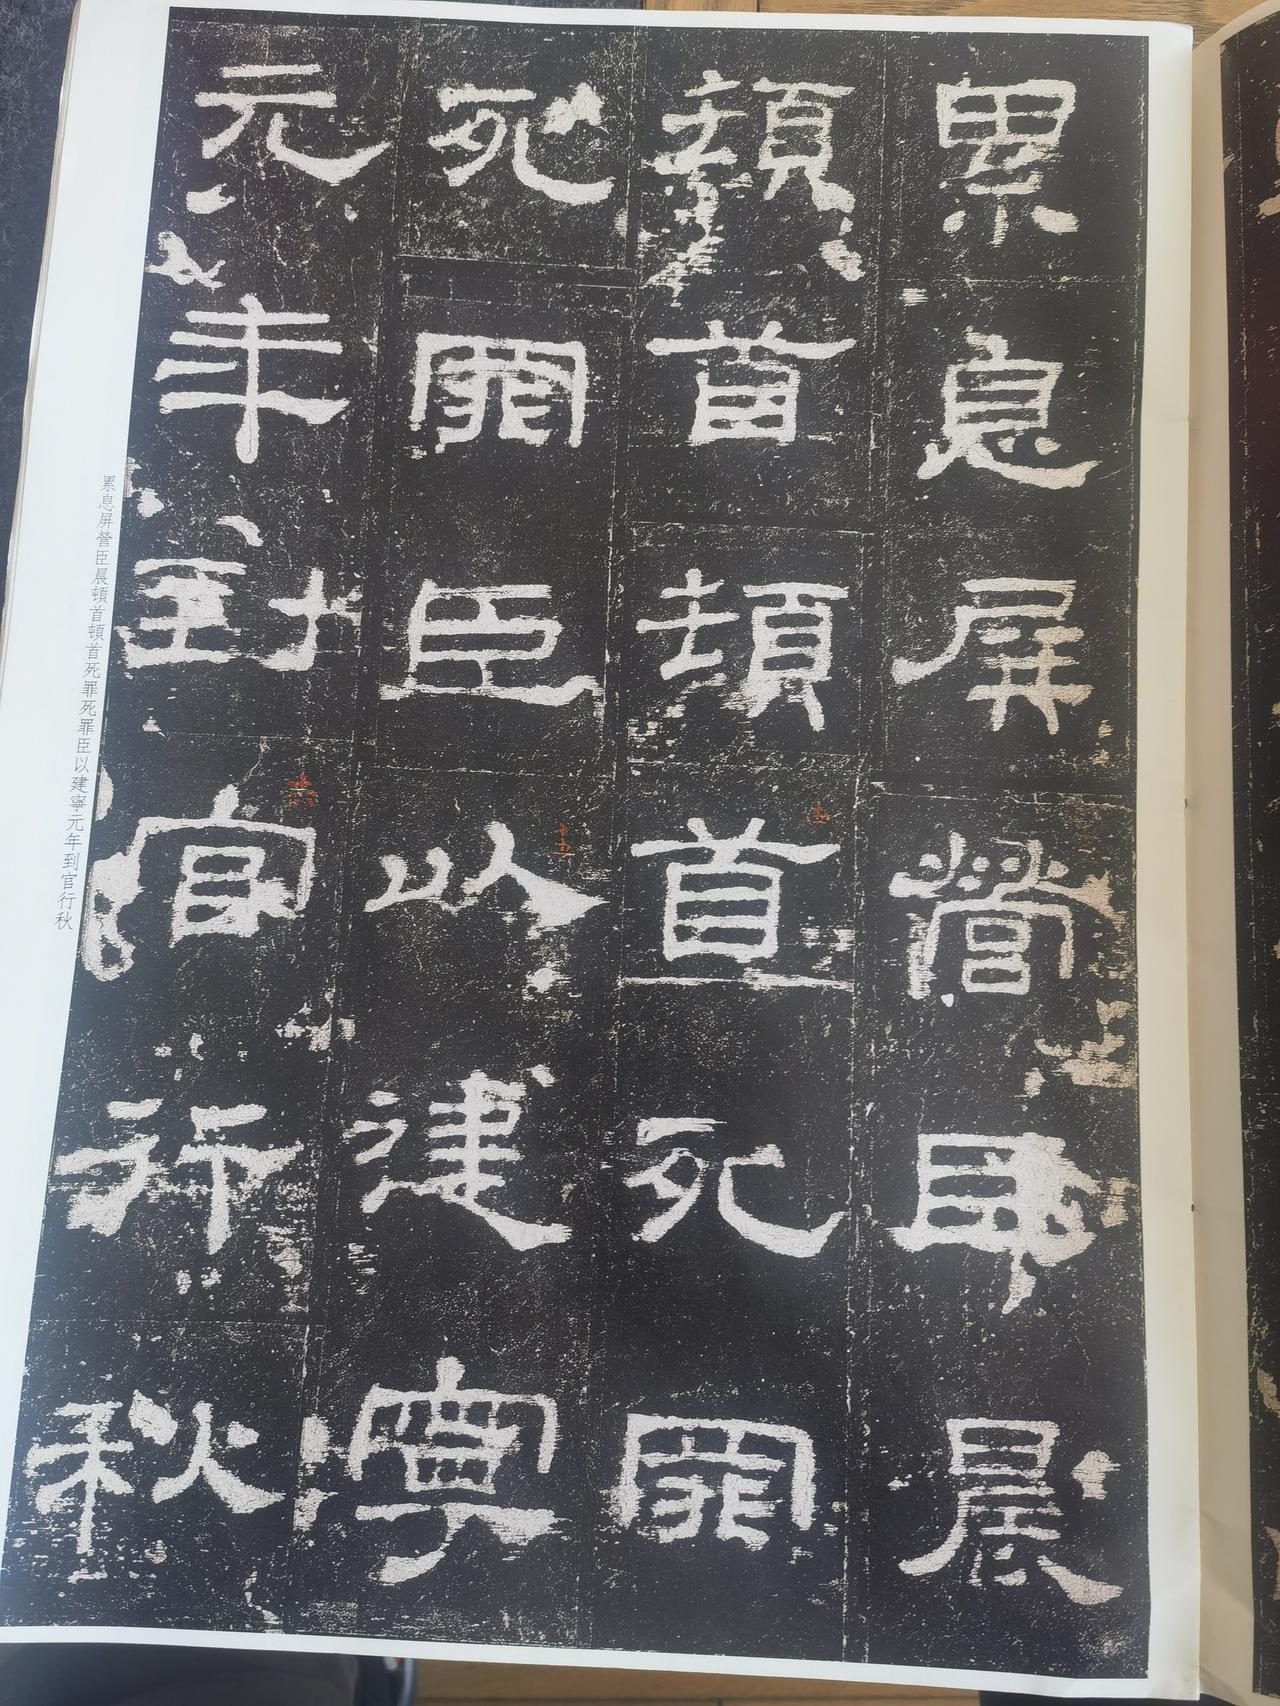 累息屏營臣晨
頓首頓首死罪
死罪臣以建寧
元年到官行秋
累息屏營臣晨頓首頓首死罪死罪臣以建寧元年到官行秋